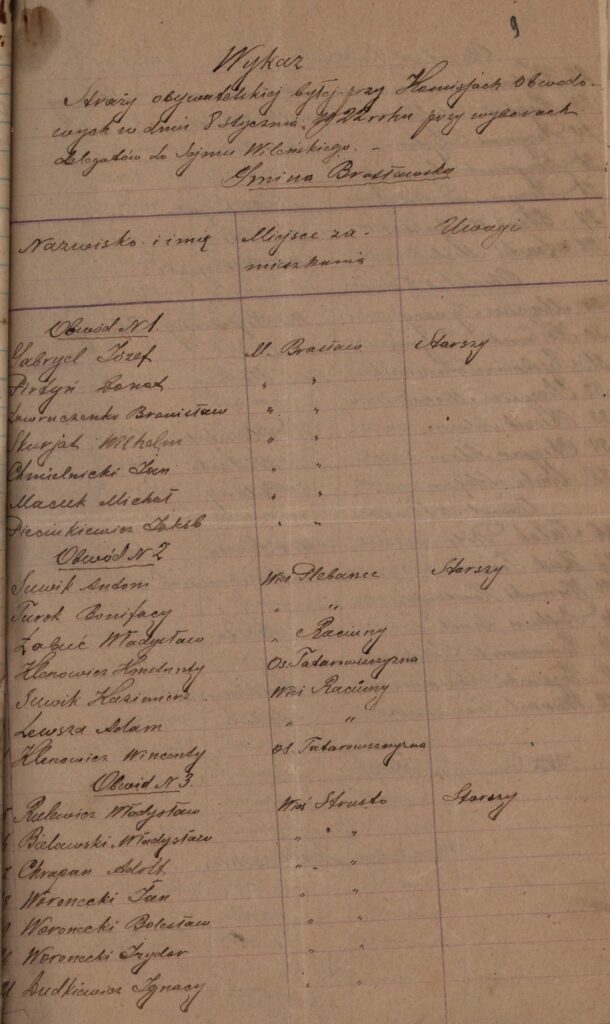 9
Wykaz
Straży obywatelskiej byłej przy Komisjach Obwodo-
wych w dniu 8 stycznia 1922 roku przy wyborach
delegatów do Sejmu Wileńskiego. –
Gmina Brasławska
Nazwisko i imię Miejsce za- Uwagi
mieszkania
Obwód N 1.
Gabryel Józef M. Brasław Starszy
Pirtyń Donat " "
Zaworuczenko Bronisław " "
Skurjat Wilhelm " "
Chmielnicki Jan " "
Maciuk Michał " "
Pieciukiewicz Jakób " "
Obwód N 2
Suwik Antoni Wieś Plebańce Starszy
Turok Bonifacy " "
Żabuć Władysław " Raciuny
Klenowicz Konstanty Os. Tatarowszczyzna
Suwik Kazimierz Wieś Raciuny
Lewsza Adam " "
Klenowicz Wincenty Os. Tatarowszczyzna
Obwód N 3
Rulewicz Władysław Wieś Strusto Starszy
Bielawski Władysław " "
Chrapan Adolf " "
Woronecki Jan " "
Woronecki Bolesław " "
Woronecki Izydor " "
Dudkiewicz Ignacy " "